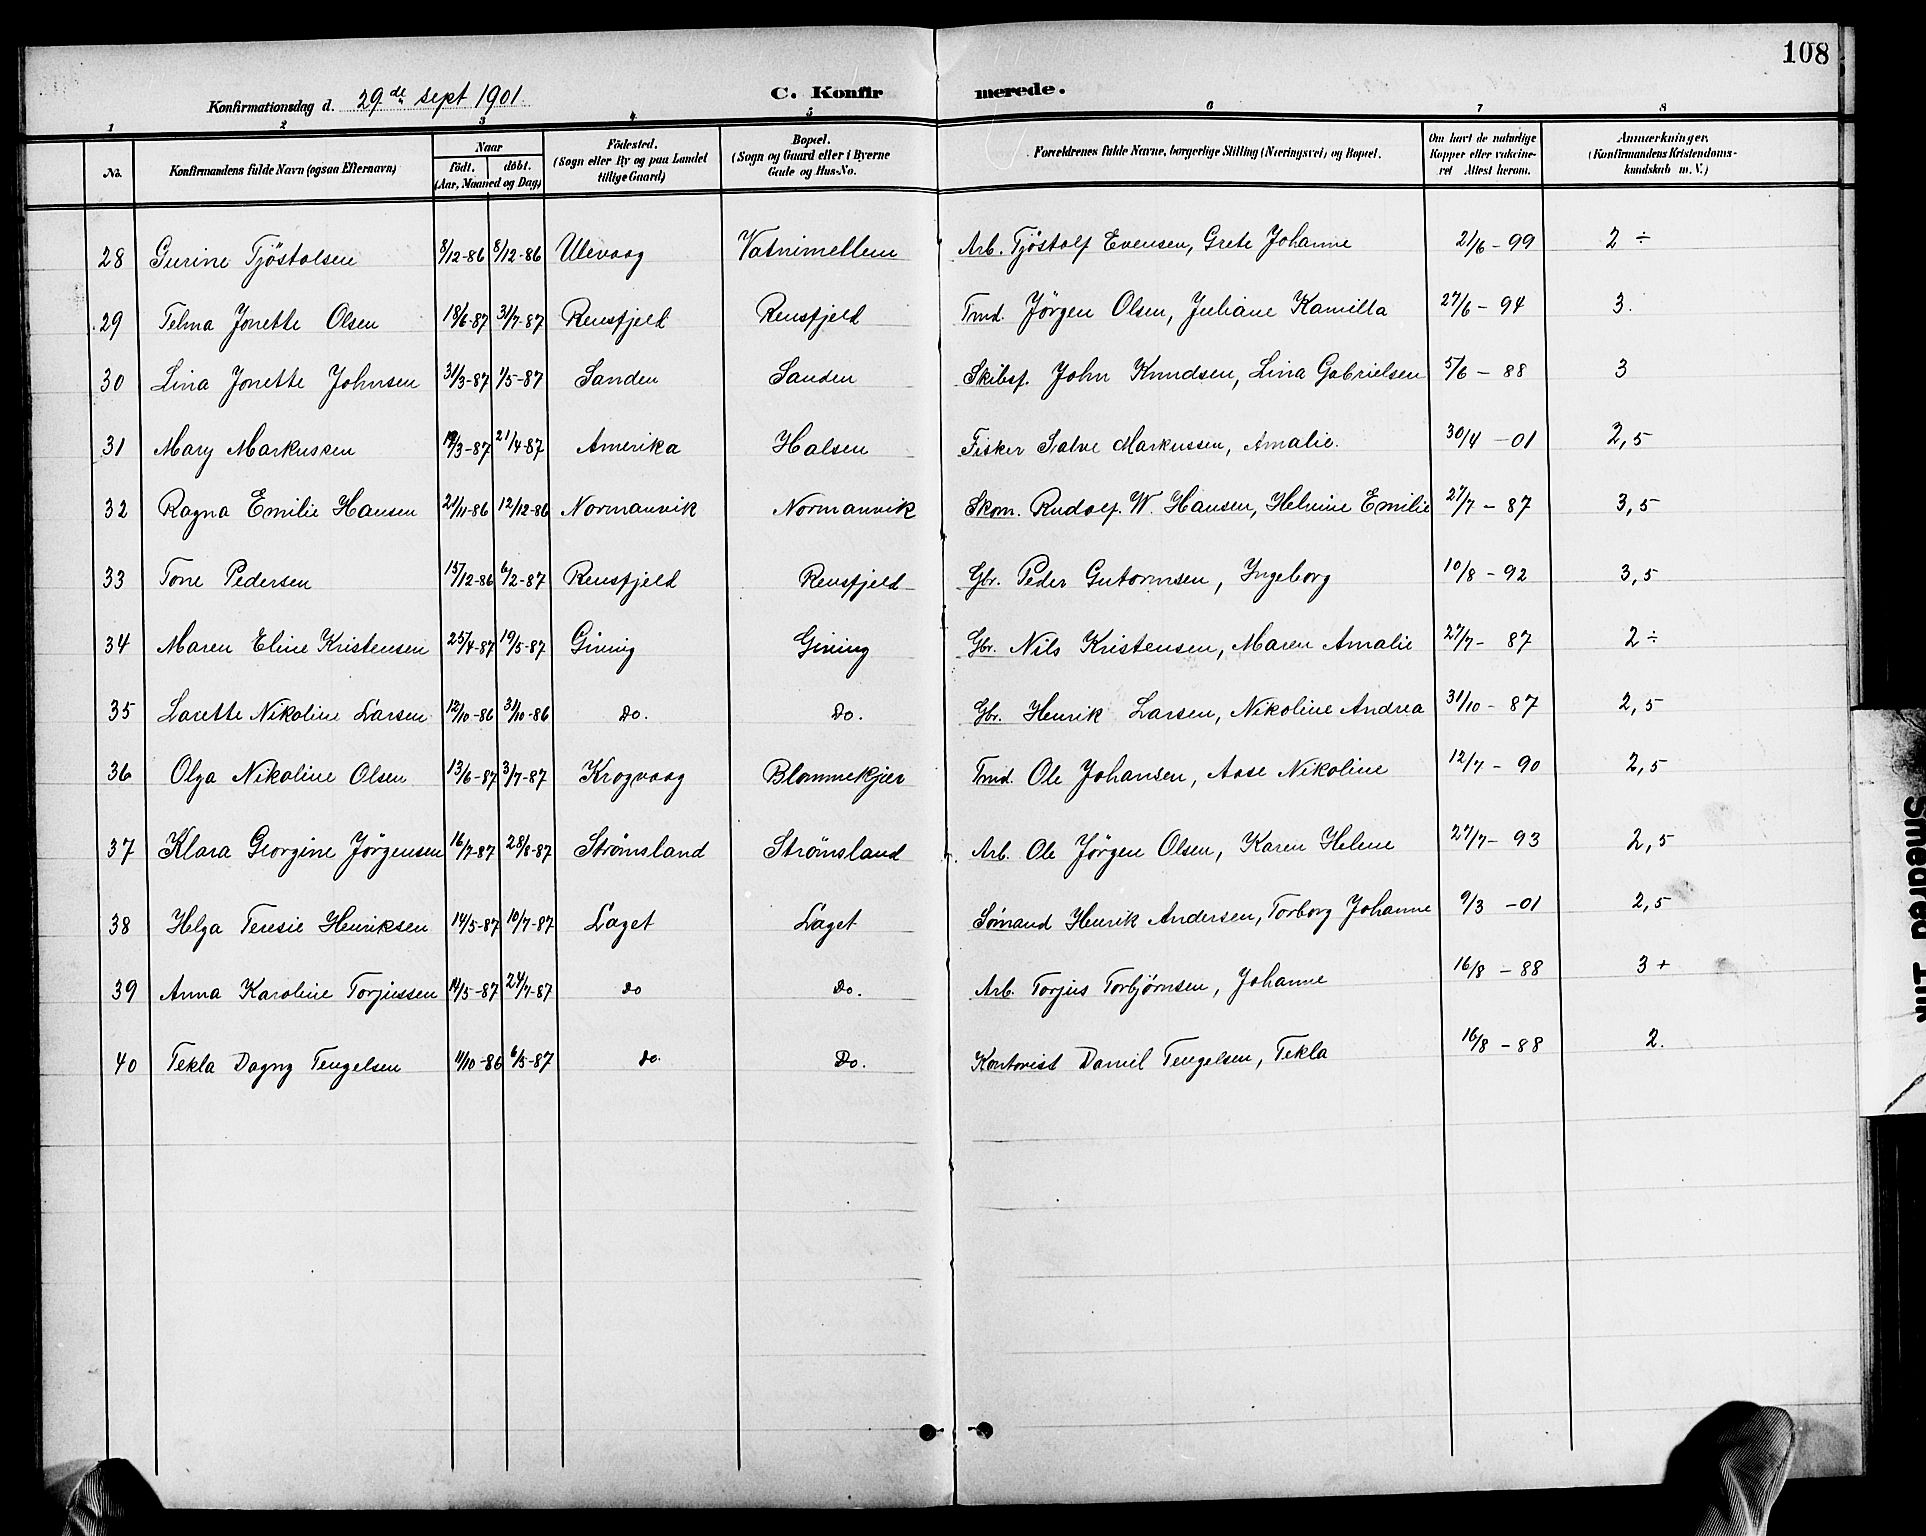 108
Konfirmationsdag d. 29de sept 1901. C. Konfirmerede.
1 2 3 4 5 6 7 8
No. Konfirmandens fulde Navn (ogsaa Efternavn) Naar født. døbt. (Aar, Maaned og Dag) Födested. (Sogn eller By og paa Landet tillige Gaard) Bopæl. (Sogn og Gaard eller i Byerne Gade og Hus-No. Forældrenes fulde Navne, borgerlige Stilling (Næringsvei) og Bopæl. Om havt de naturlige Kopper eller vakcineret Attest herom. Anmærkninger. (Konfirmandens Kristendomskundskab m. V.)
28 Gurine Tjöstolsen 8/12-86 8/12-86 Ulevaag Vatnimellem Arb. Tjöstolf Evensen, Grete Johanne 21/6-99 2 ÷
29 Telma Jonette Olsen 18/6-87 31/7-87 Rensfjeld Rensfjeld Tmd. Jörgen Olsen, Juliane Kamilla 27/6-94 3.
30 Lina Jonette Johnsen 31/3-87 1/5-87 Sanden Sanden Skibsf. John Knudsen, Lina Gabrielsen 5/6-88 3
31 Mary Markussen /3-87 21/4-87 Amerika Halsen Fisker Salve Markussen, Amalie. 30/4-01 2,5
32 Ragna Emilie Hansen 21/11-86 12/12-86 Normanvik Normanvik Skom. Rudolf. W. Hansen, Helmine Emilie 27/7-87 3,5
33 Tone Pedersen 15/12-86 6/2-87 Rensfjeld Rensfjeld Gbr. Peder Gutormsen, Ingeborg 10/8-92 3,5
34 Maren Eline Kristensen 25/4-87 19/5-87 Giving Giving Gbr. Nils Kristensen, Maren Amalie 27/7-87 2 ÷
35 Lovette Nikoline Larsen 12/10-86 31/10-86 Do. Do. Gbr. Henrik Larsen, Nikoline Andrea 31/10-87 2,5
36 Olga Nikoline Olsen 13/6-87 3/7-87 Krogvaag Blommekjær Tmd. Ole Johansen, Aase Nikoline 12/7-90 2,5
37 Klara Georgine Jørgensen 16/7-87 28/8-87 Strømsland Strømsland Arb. Ole Jørgen Olsen, Karen Helene 27/7-93 2,5
38 Helga Teresie Henriksen 14/5-87 10/7-87 Laget Laget Sømand Henrik Andersen, Torborg Johanne 9/3-01 2,5
39 Anna Karoline Torjussen 14/5-87 24/7-87 do Do. Arb. Torjus Torbjørnsen, Johanne 16/8-88 3 +
40 Tekla Dagny Tengelsen 11/10-86 6/5-87 do. Do. Kontorist Daniel Tengelsen, Tekla 16/8-88 2.
Smeared Ink